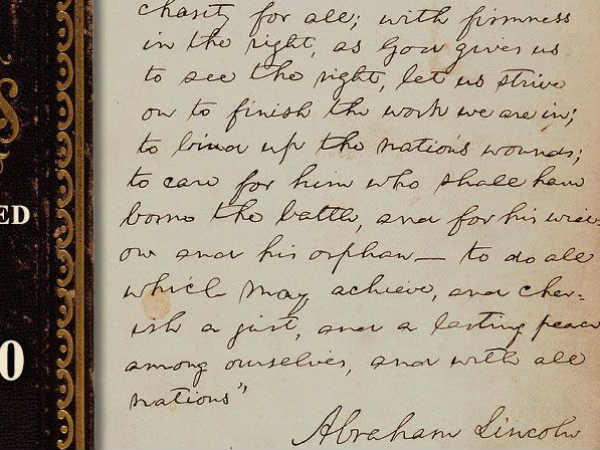 S
ED
0
charity for all; with firmness
in the right, as God gives us
to see the right, let us strive
on to finish the work we are in;
to bind up the nation's wounds;
to care for him who shall have
borne the battle, and for his wid-
ow and his orphan— to do all
which may achieve, and cher-
ish a just, and a lasting peace
among ourselves, and with all
nations"
Abraham Lincoln